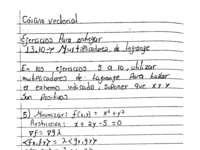 Cálculo vectorial
Ejercicios Para entregar
13.10 → Multiplicadores de Lagrange
En los ejercicios 5 a 10, utilizar
multiplicadores de Lagrange Para hallar
el extremo indicado, suponer que x y y
son positivos
5) Minimizar: f(x,y) = x² + y²
Restricción: x + 2y - 5 = 0
∇f = λ∇g
<fx, fy> = λ<gx, gy>